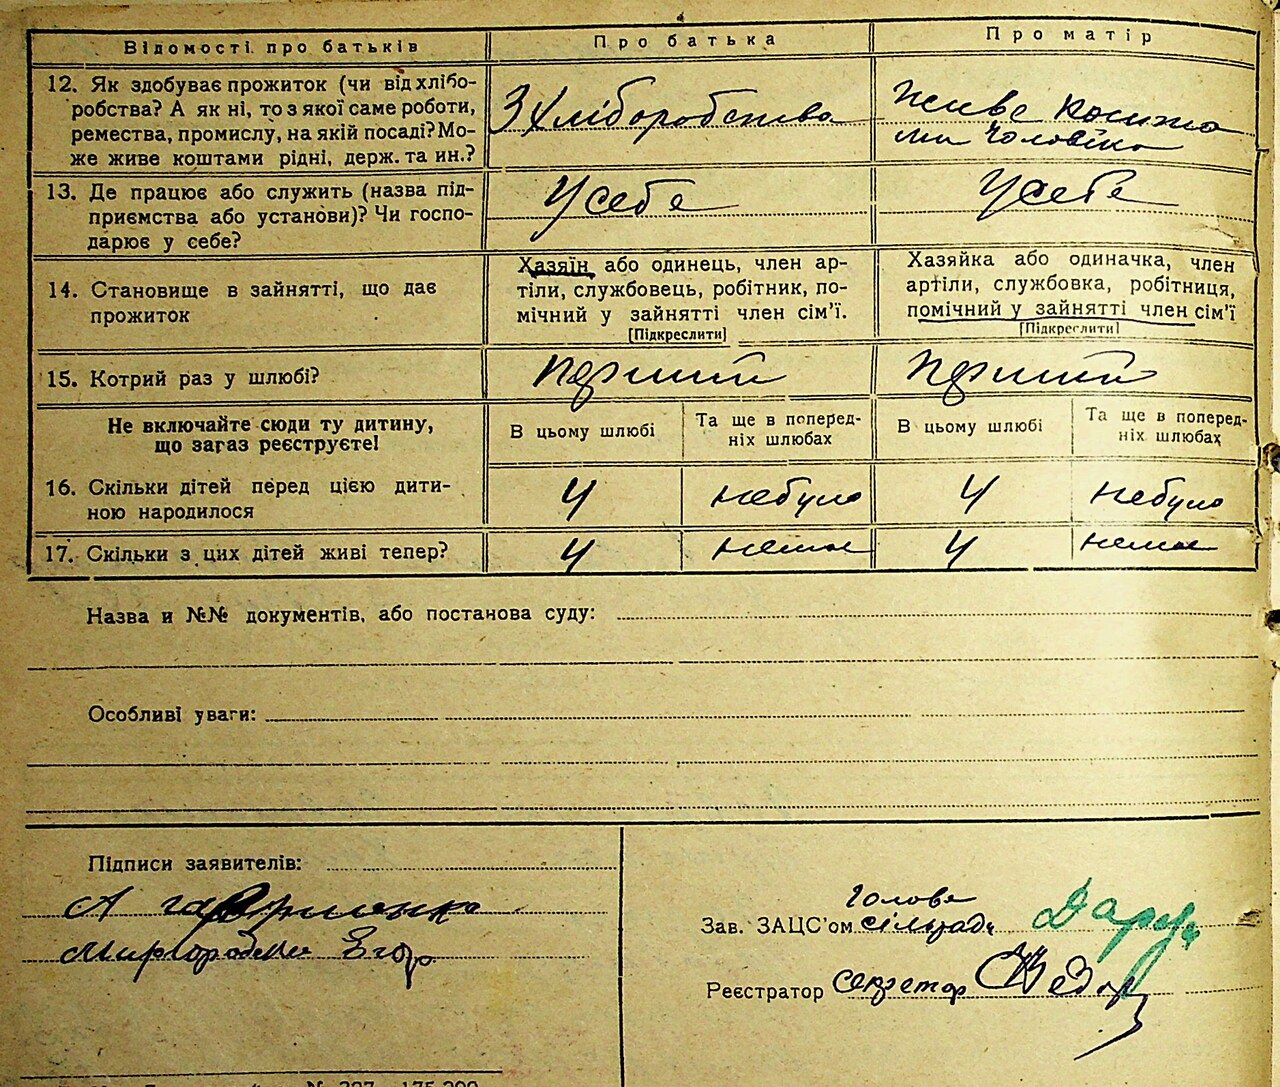 Відомості про батьків
Про батька
Про матір
12. Як здобуває прожиток (чи від хлібо-
робства? А як ні, то з якої саме роботи,
ремества, промислу, на якій посаді? Мо-
же живе коштами рідні, держ. та ин.?
З хліборобства
живе кошта
ми чоловіка
13. Де працює або служить (назва під-
приємства або установи)? Чи госпо-
дарює у себе?
У себе
У себе
14. Становище в зайнятті, що дає
прожиток
Хазяїн або одинець, член ар-
тіли, службовець, робітник, по-
мічний у зайнятті член сім’ї.
[Підкреслити]
Хазяйка або одиначка, член
артіли, службовка, робітниця,
помічний у зайнятті член сім’ї
[Підкреслити]
15. Котрий раз у шлюбі?
Перший
Перший
Не включайте сюди ту дитину,
що загаз реєструєте!
В цьому шлюбі
Та ще в поперед-
ніх шлюбах
В цьому шлюбі
Та ще в поперед-
ніх шлюбах
16. Скільки дітей перед цією дити-
ною народилося
4
небуло
4
небуло
17. Скільки з цих дітей живі тепер?
4
нема
4
нема
Назва и №№ документів, або постанова суду:
Особливі уваги:
Підписи заявителів:
А
Егор
Голова
Зав. ЗАЦС’ом сільради
Реєстратор секретар